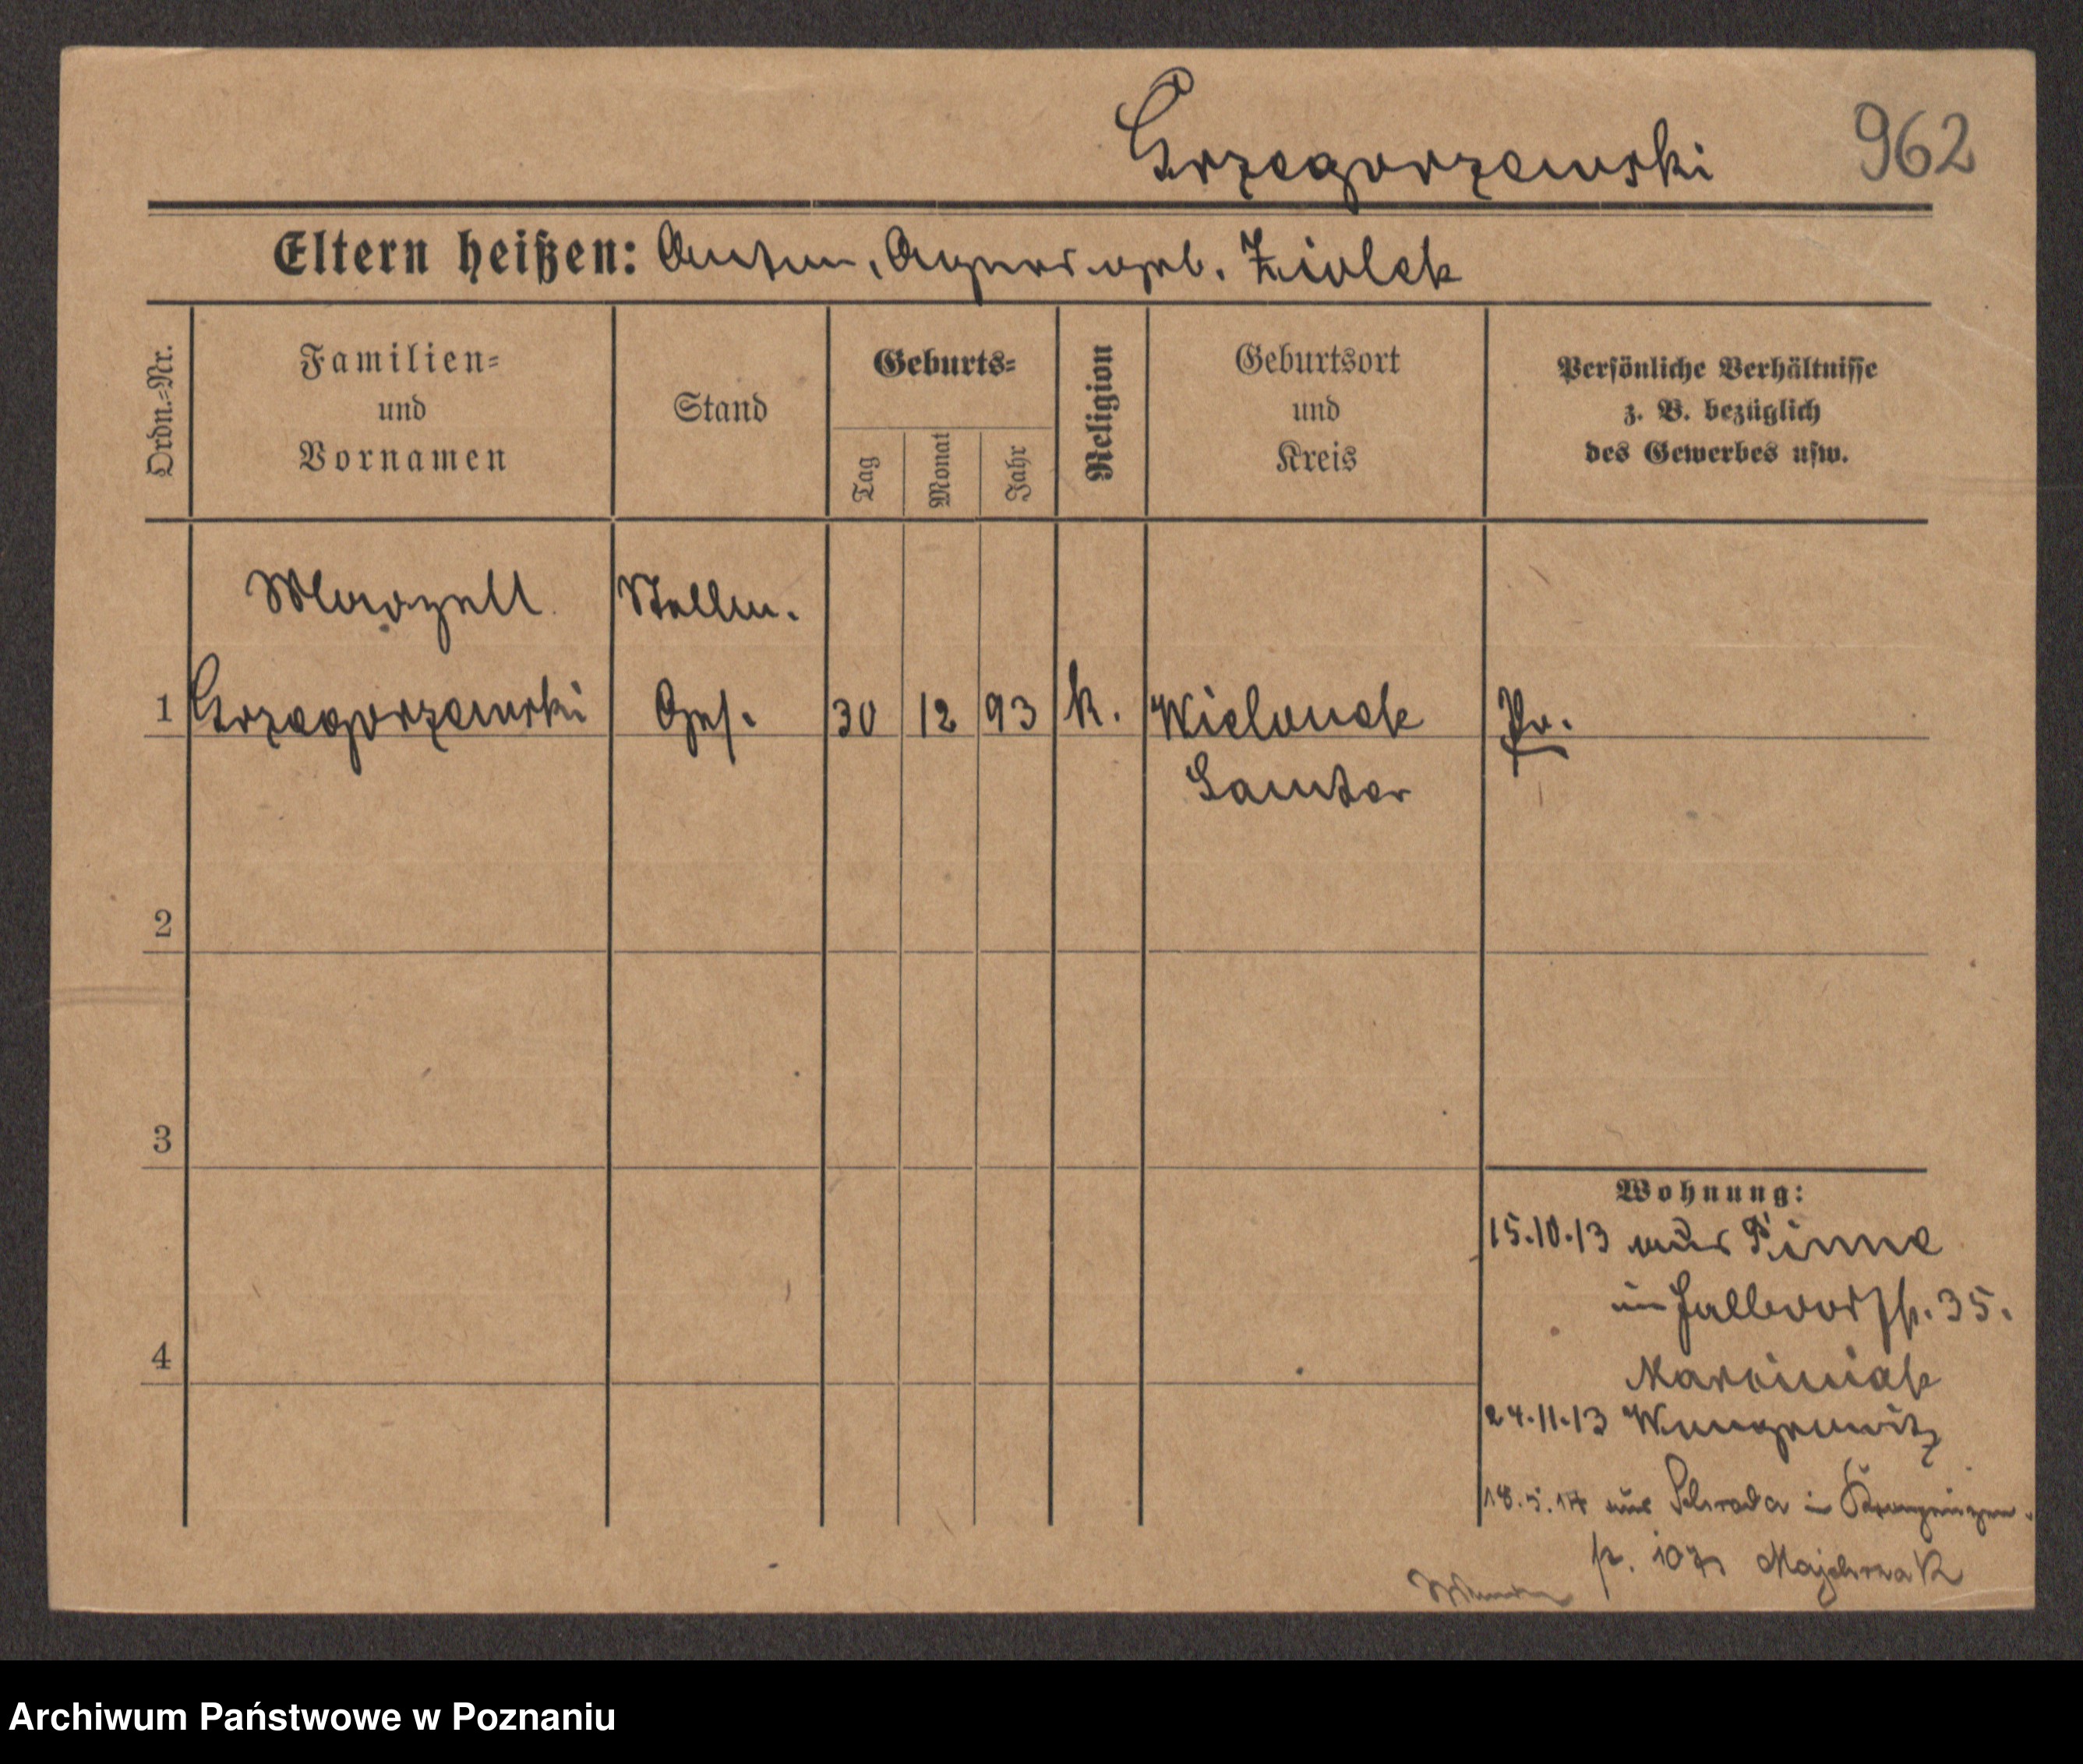 Grzegorzewski 962
Eltern heißen: Anton, Agnes geb. Ziolek
Ordn.-Nr.
Familien-
und
Vornamen
Stand
Geburts-
Tag
Monat
Jahr
Religion
Geburtsort
und
Kreis
Persönliche Verhältnisse
z. B. bezüglich
des Gewerbes usw.
Marzell Stellm.
1 Grzegorzewski Ges. 30 12 93 k. Wielonek Pr.
Samter
2
3
4
Wohnung:
15.10.13 aus Pinne
in Halldorfstr. 35.
Marciniak
24.11.13 Wongrowitz
18.5.17 aus Schroda in Kronprinzen-
str. 107 Majchrzak
Archiwum Państwowe w Poznaniu